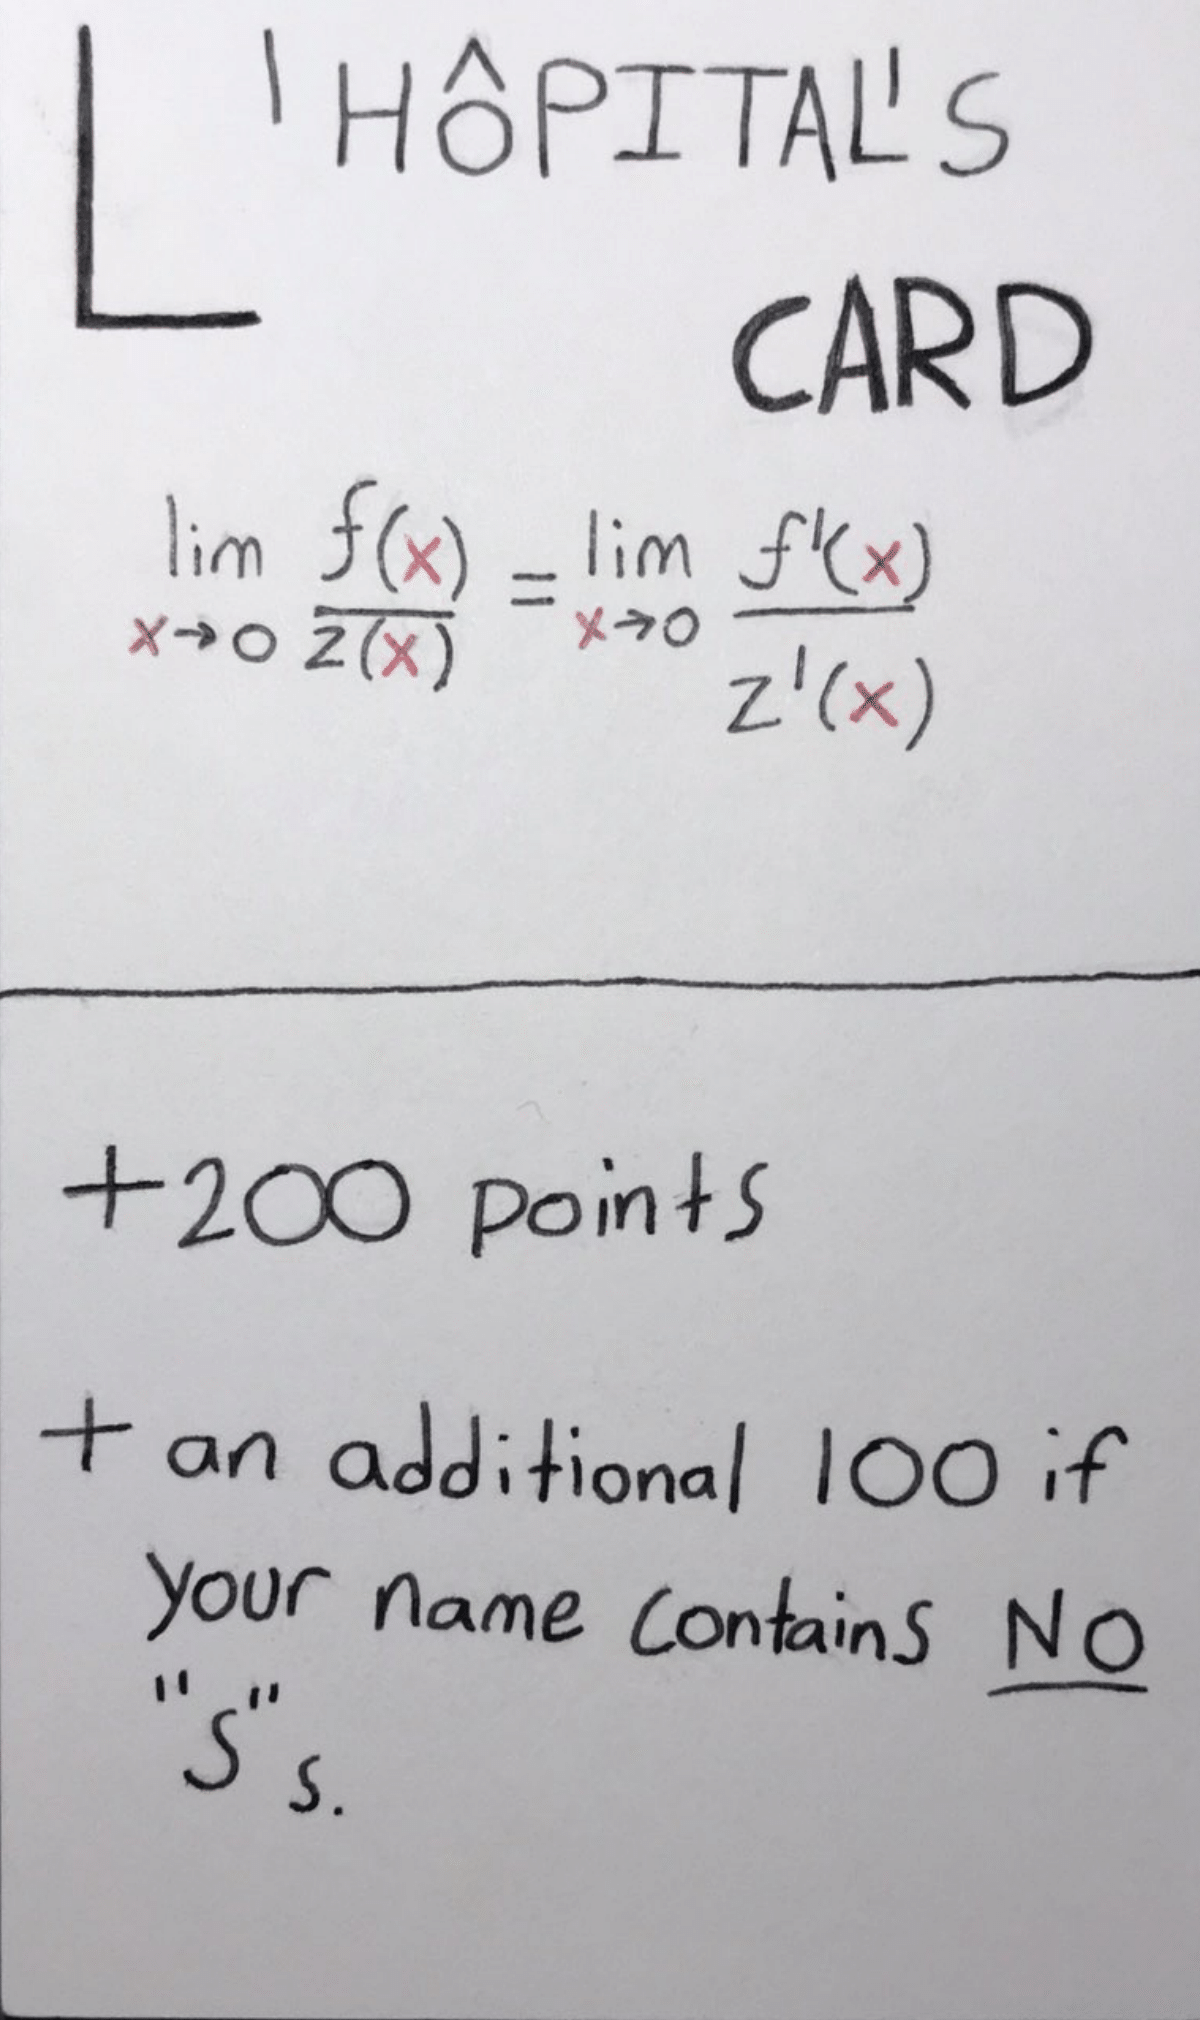 L'HÔPITAL'S
CARD
lim f(x) = lim f'(x)
x→0 z(x) x→0 z'(x)
+200 points
+ an additional 100 if
your name contains NO
"S"s.